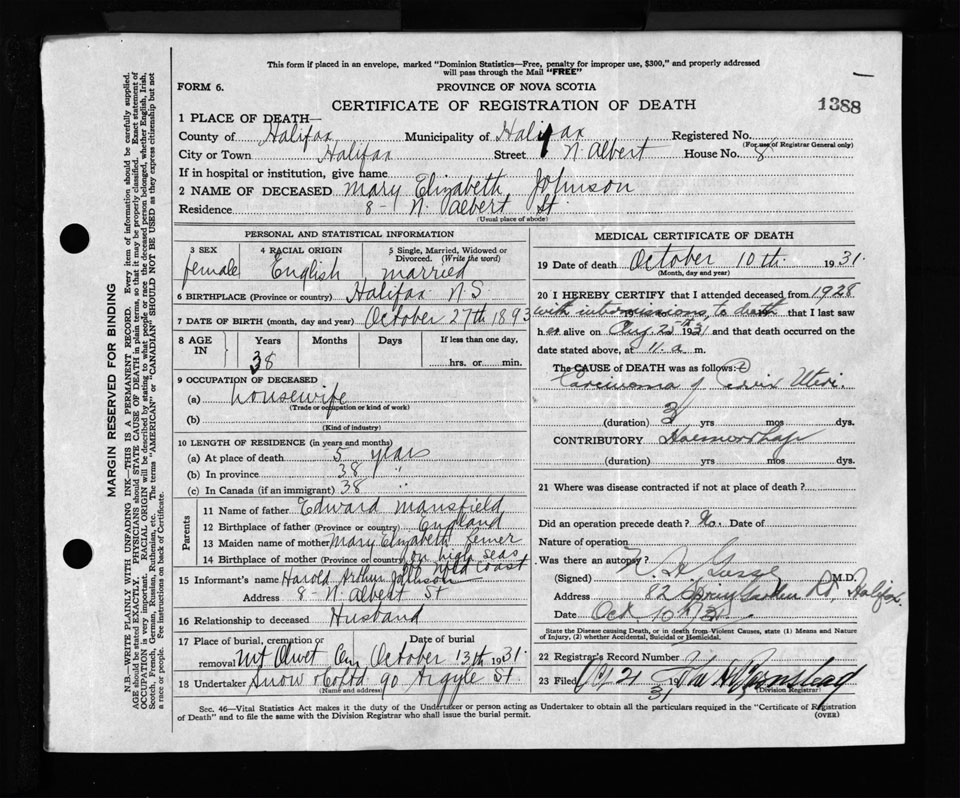 This form if placed in an envelope, marked "Dominion Statistics—Free, penalty for improper use, $300," and properly addressed
will pass through the Mail "FREE"
FORM 6.
PROVINCE OF NOVA SCOTIA
CERTIFICATE OF REGISTRATION OF DEATH
1388
1 PLACE OF DEATH—
County of Halifax Municipality of Halifax Registered No.
(For use of Registrar General only)
City or Town Halifax Street N Albert House No. 8
If in hospital or institution, give name
2 NAME OF DECEASED Mary Elizabeth Johnson
Residence 8 - N. Albert St
(Usual place of abode)
PERSONAL AND STATISTICAL INFORMATION
3 SEX 4 RACIAL ORIGIN 5 Single, Married, Widowed or
Divorced. (Write the word)
female English married
6 BIRTHPLACE (Province or country) Halifax N.S
7 DATE OF BIRTH (month, day and year) October 27th 1893
8 AGE IN Years Months Days If less than one day,
38 hrs. or min.
9 OCCUPATION OF DECEASED
(a) housewife
(Trade or occupation or kind of work)
(b)
(Kind of industry)
10 LENGTH OF RESIDENCE (in years and months)
(a) At place of death 5 years
(b) In province 38 "
(c) In Canada (if an immigrant) 38 "
Parents
11 Name of father Edward Mansfield
12 Birthplace of father (Province or country) England
13 Maiden name of mother Mary Elizabeth
14 Birthplace of mother (Province or country) on high seas
off Nfld coast
15 Informant's name Harold Arthur Johnson
Address 8 - N. Albert St
16 Relationship to deceased Husband
17 Place of burial, cremation or Date of burial
removal Mt Olivet Cem October 13th 1931.
18 Undertaker Snow & Co Ltd 90 Argyle St
(Name and address)
MEDICAL CERTIFICATE OF DEATH
19 Date of death October 10th. 1931.
(Month, day and year)
20 I HEREBY CERTIFY that I attended deceased from 1928
with intermissions, to death that I last saw
her alive on Aug. 25th 1931 and that death occurred on the
date stated above, at 11. a m.
The CAUSE of DEATH was as follows:
Carcinoma of Cervix Uteri.
(duration) 3 yrs mos dys.
CONTRIBUTORY Haemorrhage
(duration) yrs mos dys.
21 Where was disease contracted if not at place of death?
Did an operation precede death? No. Date of
Nature of operation
Was there an autopsy?
(Signed) M.D.
Address 82 Spring Garden Rd, Halifax.
Date Oct 10th/31
State the Disease causing Death, or in death from Violent Causes, state (1) Means and Nature
of Injury, (2) whether Accidental, Suicidal or Homicidal.
22 Registrar's Record Number
23 Filed Oct 21 1931
(Division Registrar)
Sec. 46—Vital Statistics Act makes it the duty of the Undertaker or person acting as Undertaker to obtain all the particulars required in the "Certificate of Registration
of Death" and to file the same with the Division Registrar who shall issue the burial permit.
(OVER)
MARGIN RESERVED FOR BINDING
N.B.—WRITE PLAINLY WITH UNFADING INK—THIS IS A PERMANENT RECORD. Every item of information should be carefully supplied.
AGE should be stated EXACTLY. PHYSICIANS should STATE CAUSE OF DEATH in plain terms, so that it may be properly classified. Exact statement of
OCCUPATION is very important. RACIAL ORIGIN will be described by stating to what people or race the deceased person belonged, whether English, Irish,
Scotch, French, German, Russian, Ruthenian, etc. The terms "AMERICAN" or "CANADIAN" SHOULD NOT BE USED as they express citizenship but not
a race or people. See instructions on back of Certificate.